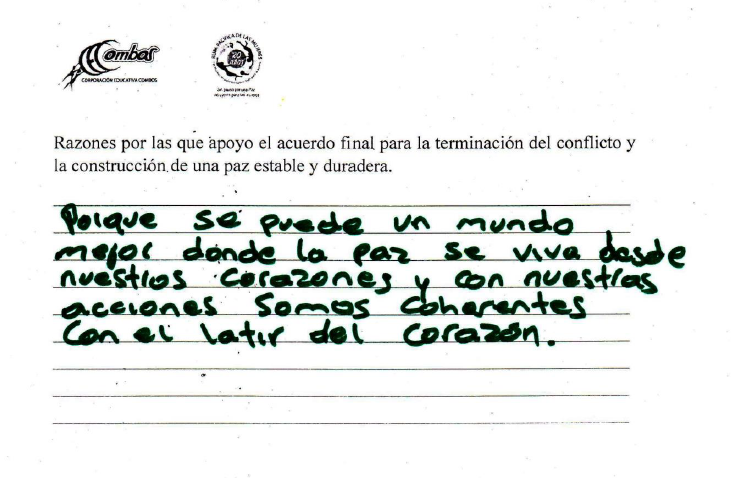 Combos
CORPORACIÓN EDUCATIVA COMBOS
RUTA PACÍFICA DE LAS MUJERES
20
AÑOS
Razones por las que apoyo el acuerdo final para la terminación del conflicto y
la construcción de una paz estable y duradera.
Porque se puede un mundo
mejor donde la paz se viva desde
nuestros corazones y con nuestras
acciones somos coherentes
Con el latir del corazón.